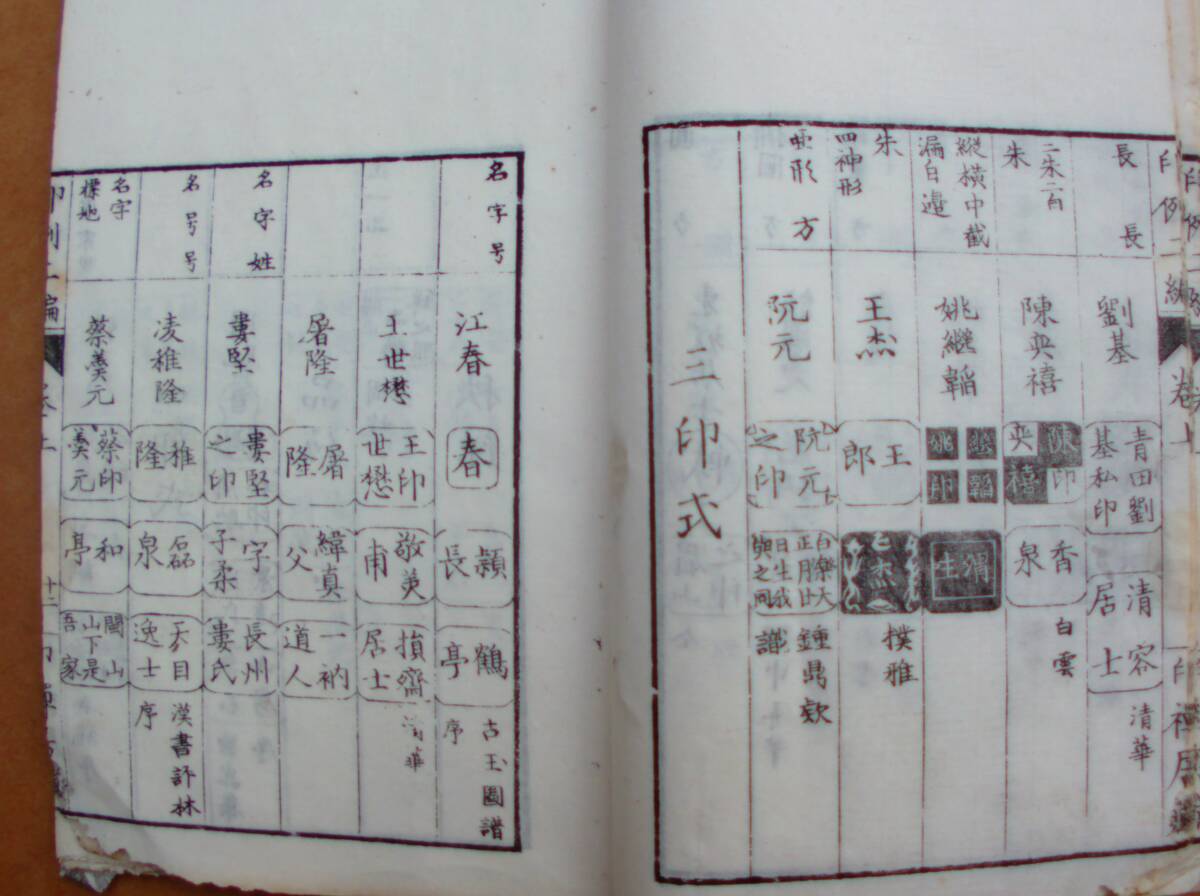 長 長
劉基
青田劉
基私印
清容
居士
清華
二朱二白
朱
陳奕禧
陳印
奕禧
香泉
白雲
縱橫中截
漏白邊
姚繼
印
生
朱
四神形
王杰
王郎
杰
樸雅
亞形 方
阮元
阮元
之印
白樂天
正月廿
日生我
與之同
鍾鼎款
識
三印式
名字号
江春
春
頴長
鶴亭
古玉圖譜
序
王世懋
王印
世懋
敬美
甫
損齋
居士
清華
屠隆
屠隆
緯真
父
一衲
道人
名字姓
婁堅
婁堅
之印
字
子柔
長州
婁氏
名号号
凌稚隆
稚隆
磊泉
天目
逸士
漢書評林
序
名字
標地
蔡羹元
蔡印
羹元
和亭
閩山
山下是
吾家